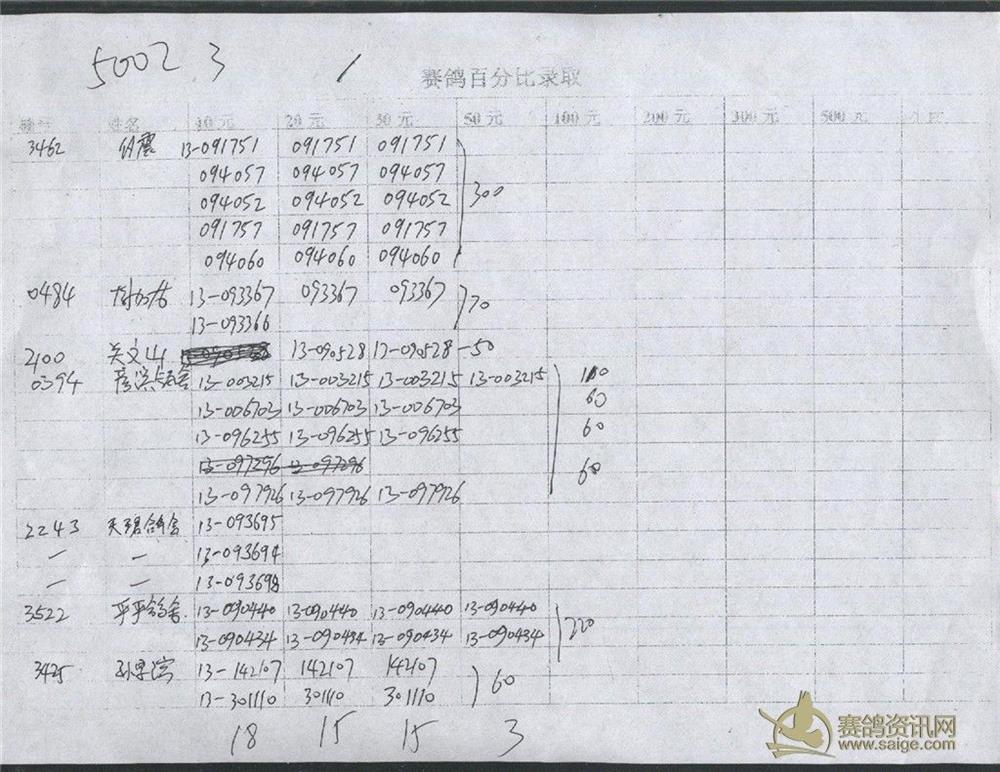 5002 3 /
赛鸽百分比录取
姓名 10元 20元 30元 50元 100元 200元 300元 500元
3462 13-091751 091751 091751
094057 094057 094057
094052 094052 094052 300
091757 091757 091757
094060 094060 094060
0484 13-093367 093367 093367 70
13-093366
2100 关文山 13-090528 13-090528 -50
0394 13-003215 13-003215 13-003215 13-003215 110
13-006703 13-006703 13-006703 60
13-096255 13-096255 13-096255 60
13-097296 13-097296 60
13-097926 13-097926 13-097926
2243 天珺鸽舍 13-093695
— — 13-093694
— — 13-093698
3522 平平鸽舍 13-090440 13-090440 13-090440 13-090440
13-090434 13-090434 13-090434 13-090434 220
3425 13-142107 142107 142107
13-301110 301110 301110 60
18 15 15 3
赛鸽资讯网
www.saige.com